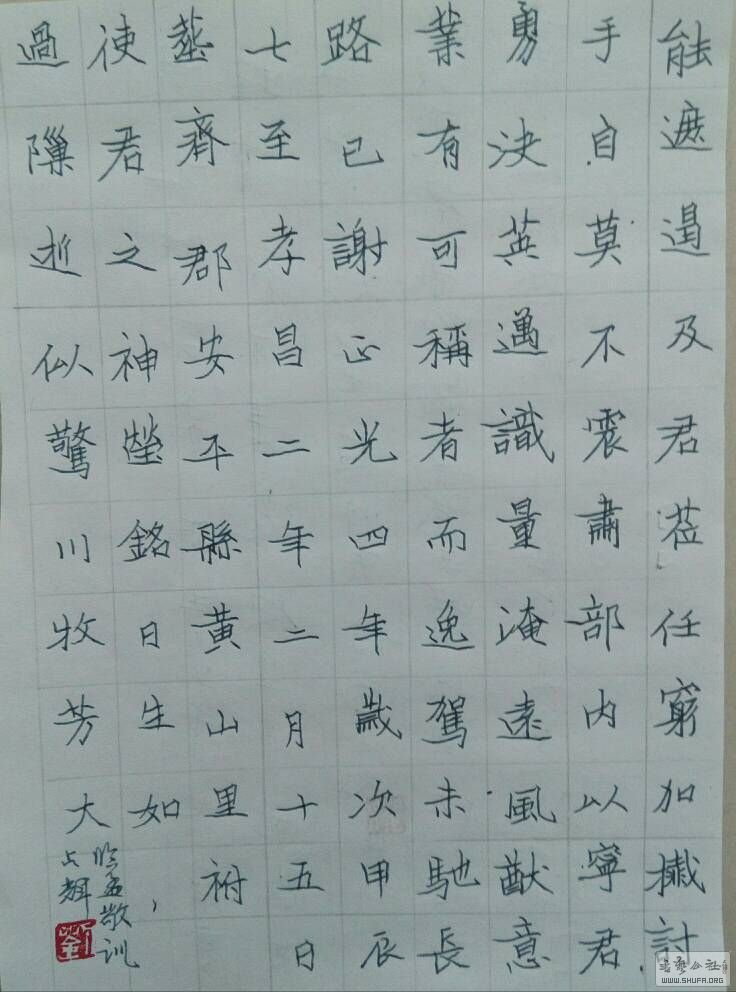 能遮遏及君莅任窮加討
手自莫不震肅部內以寧君
勇決英邁識量淹遠風猷意
業有可稱者而逸駕未馳長
路已謝正光四年歲次甲辰
七至孝昌二年二月十五日
塟齊郡安平縣黃山里祔
使君之神塋銘日生如,
過隟逝似驚川牧芳大
臨孟敬训
占辉
劉
书艺公社
WWW.SHUFA.ORG